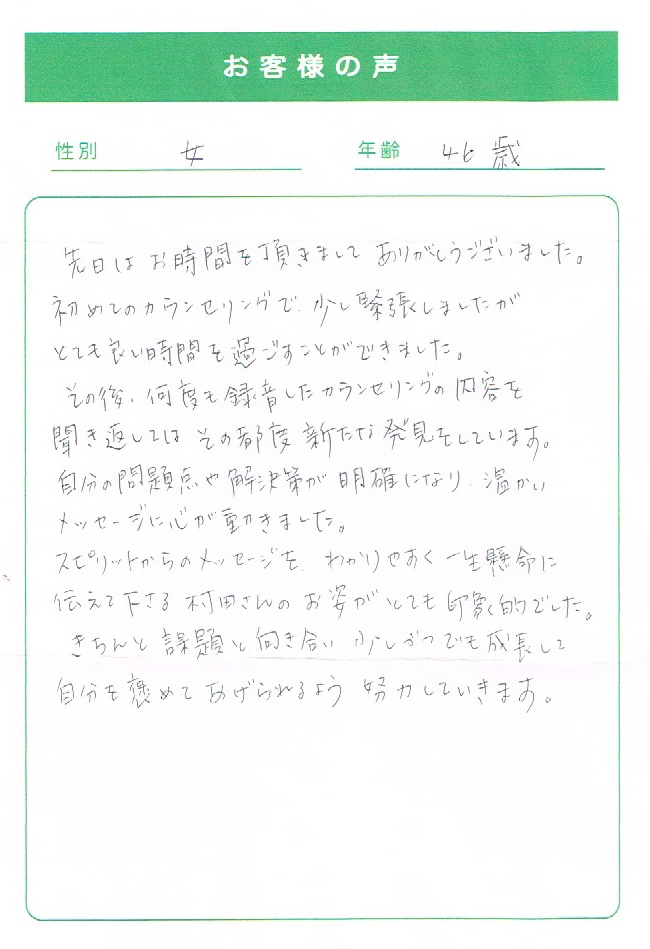 お客様の声
性別 女 年齢 46 歳
先日は お時間を頂きまして ありがとうございました。
初めてのカウンセリングで、少し緊張しましたが
とても良い時間を過ごすことができました。
その後、何度も録音したカウンセリングの内容を
聞き返しては その都度 新たな発見をしています。
自分の問題点や解決策が明確になり、温かい
メッセージに心が動きました。
スピリットからのメッセージを、わかりやすく一生懸命に
伝えて下さる 村田さんの お姿がとても印象的でした。
きちんと 課題と向き合い 少しづつでも成長して
自分を褒めてあげられるよう 努力していきます。